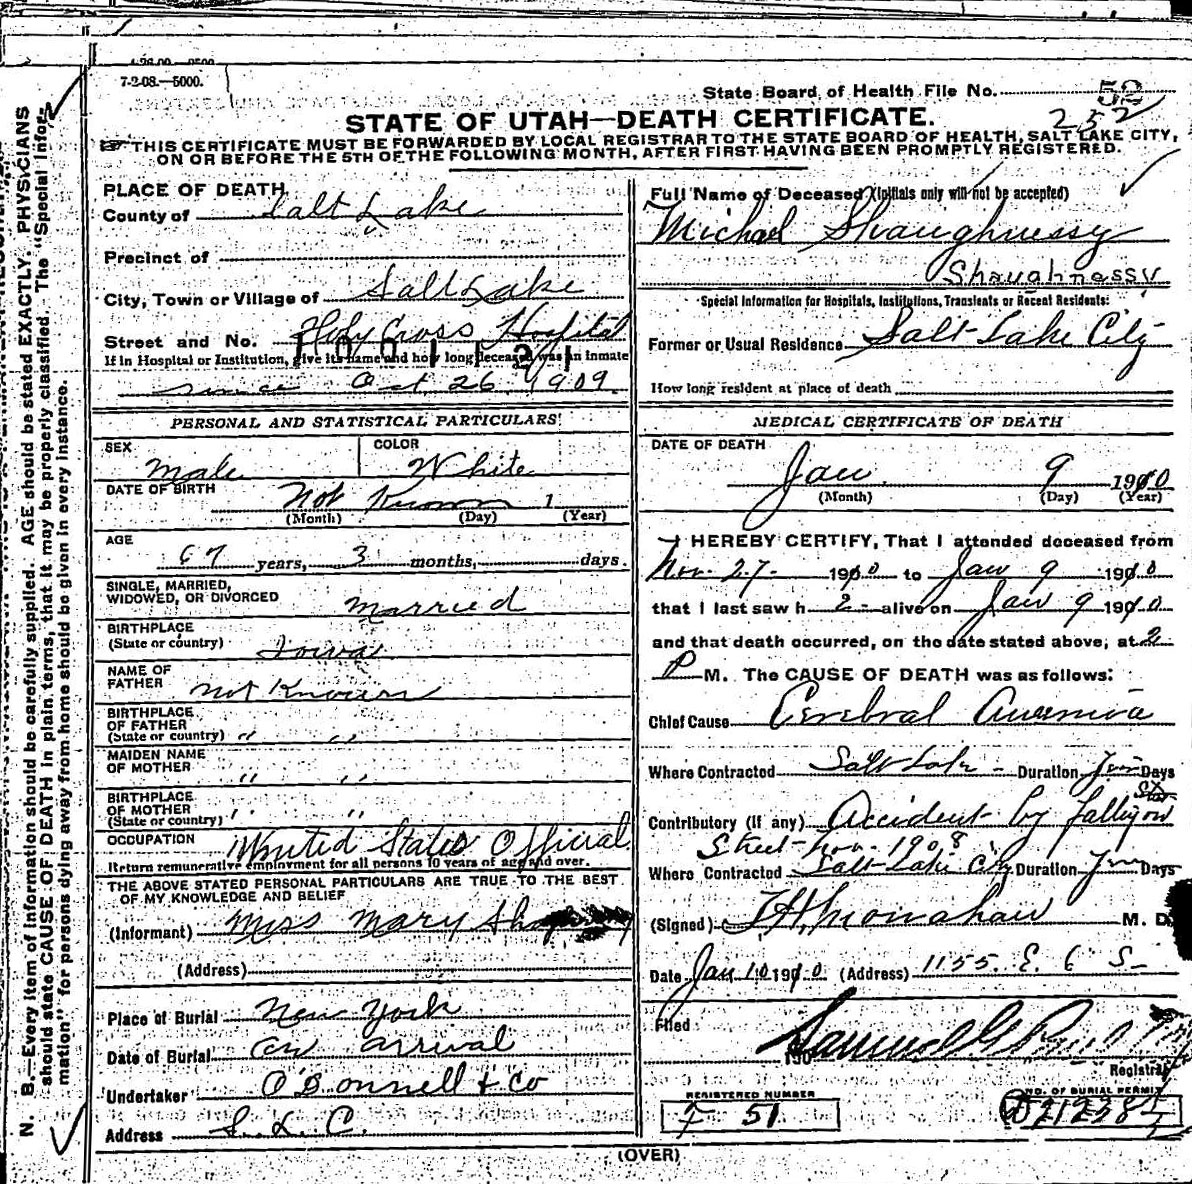 7-2-08.—5000.
State Board of Health File No. 52
252
STATE OF UTAH—DEATH CERTIFICATE.
THIS CERTIFICATE MUST BE FORWARDED BY LOCAL REGISTRAR TO THE STATE BOARD OF HEALTH, SALT LAKE CITY,
ON OR BEFORE THE 5TH OF THE FOLLOWING MONTH, AFTER FIRST HAVING BEEN PROMPTLY REGISTERED.
N. B.—Every item of information should be carefully supplied. AGE should be stated EXACTLY. PHYSICIANS
should state CAUSE OF DEATH in plain terms, that it may be properly classified. The "Special Infor-
mation" for persons dying away from home should be given in every instance.
PLACE OF DEATH
County of Salt Lake
Precinct of
City, Town or Village of Salt Lake
Street and No. Holy Cross Hospital
If in Hospital or Institution, give its name and how long deceased was an inmate
since Oct 26 1909
PERSONAL AND STATISTICAL PARTICULARS
SEX Male COLOR White
DATE OF BIRTH Not Known 1
(Month) (Day) (Year)
AGE
67 years, 3 months, days.
SINGLE, MARRIED,
WIDOWED, OR DIVORCED Married
BIRTHPLACE
(State or country) Iowa
NAME OF
FATHER Not Known
BIRTHPLACE
OF FATHER
(State or country) " "
MAIDEN NAME
OF MOTHER " "
BIRTHPLACE
OF MOTHER
(State or country) " "
OCCUPATION United States Official
Return remunerative employment for all persons 10 years of age and over.
THE ABOVE STATED PERSONAL PARTICULARS ARE TRUE TO THE BEST
OF MY KNOWLEDGE AND BELIEF
(Informant) Miss Mary
(Address)
Place of Burial New York
Date of Burial On arrival
Undertaker O'Donnell & Co
Address S. L. C.
Full Name of Deceased (Initials only will not be accepted)
Michael Shaughnessy
Shaughnessy
Special Information for Hospitals, Institutions, Transients or Recent Residents:
Former or Usual Residence Salt Lake City
How long resident at place of death
MEDICAL CERTIFICATE OF DEATH
DATE OF DEATH
Jan 9 1910
(Month) (Day) (Year)
I HEREBY CERTIFY, That I attended deceased from
Nov. 27 - 190 to Jan 9 1910
that I last saw h alive on Jan 9 1910
and that death occurred, on the date stated above, at 2
P M. The CAUSE OF DEATH was as follows:
Chief Cause Cerebral Anemia
Where Contracted Salt Lake - Duration Days
Contributory (if any) Accident by falling on
Street Nov. 1908
Where Contracted Salt Lake City Duration Days
(Signed) Monahan M. D.
Date Jan 10 1910 (Address) 1155 E. 6 S
Filed
190
Registrar
REGISTERED NUMBER
F 51
NO. OF BURIAL PERMIT
(OVER)